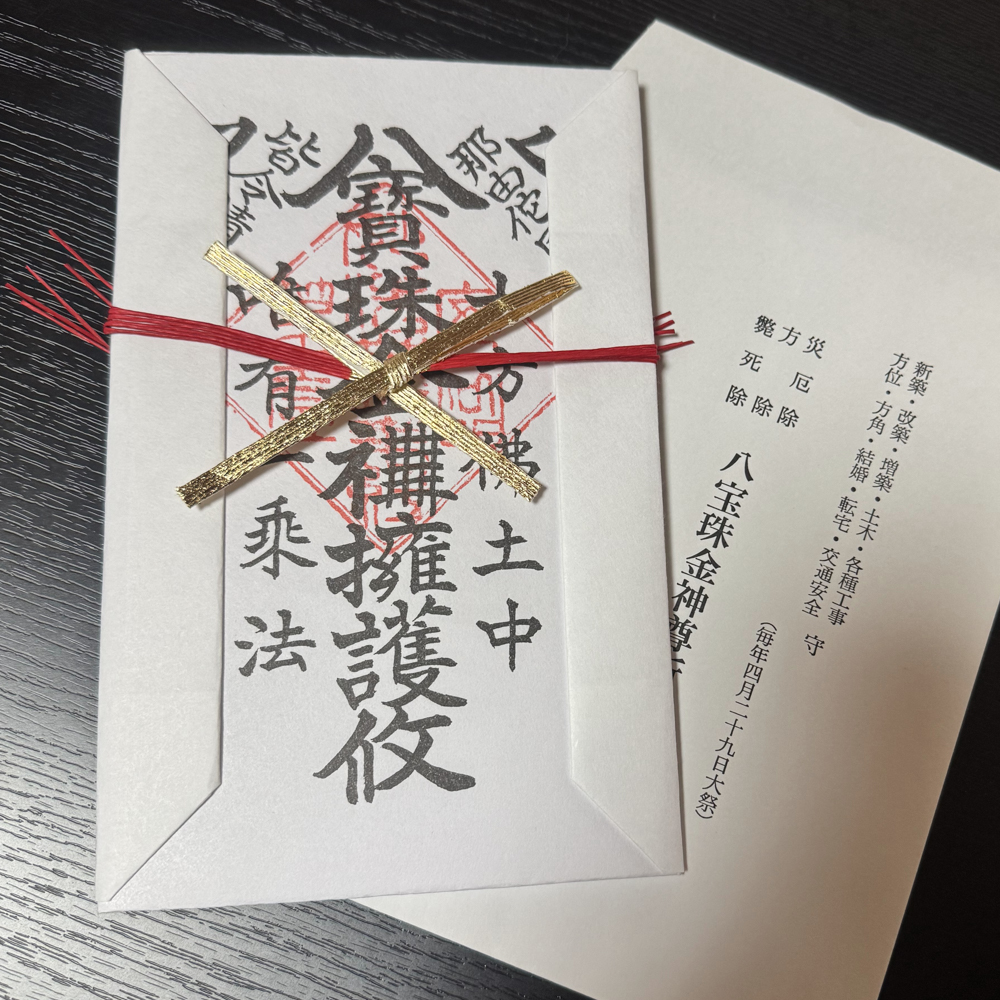 八寶珠金神擁護攸
十方佛土中
唯有一乘法
那由佗
皆令
新築・改築・増築・土木・各種工事
方位・方角・結婚・転宅・交通安全 守
災厄除
方除
斃死除
八宝珠金神尊
(毎年四月二十九日大祭)